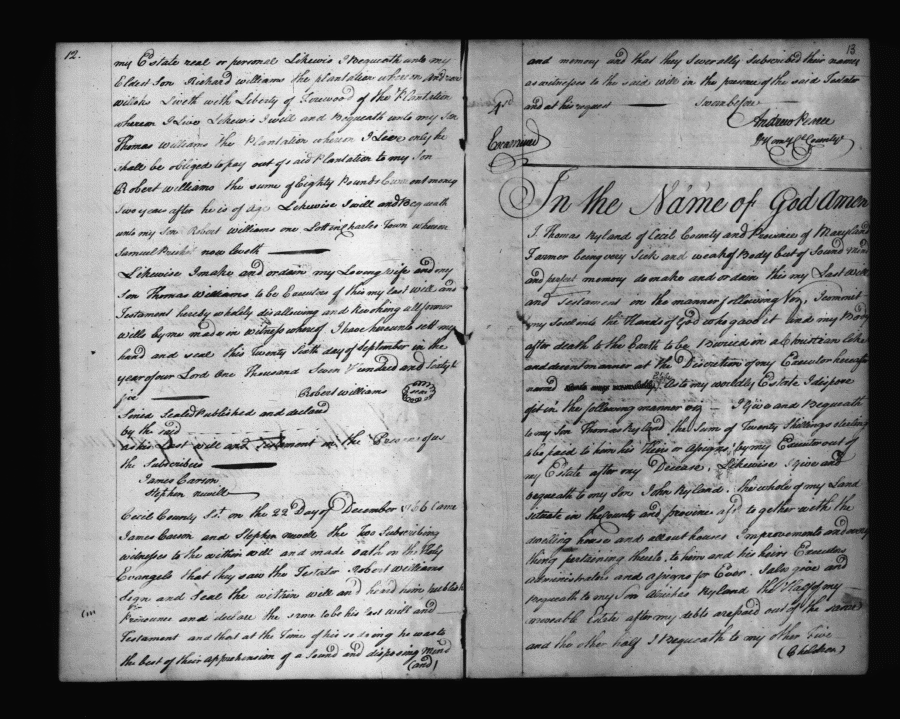 12.
my Estate real or personal Likewis I Bequeath unto my
Eldest Son Richard williams the plantation wherein
Liveth with Liberty of Firewood of the Plantation
wherein I Live Likewis I will and Bequeath unto my Son
Thomas Williams the Plantation wherein I Live only he
shall be obliged to pay out of said Plantation to my Son
Robert williams the sume of Eighty Pounds Currant money
Two years after he is of Age Likewise I will and Beqeath
unto my Son Robert Williams one Lott in Charles Town wherein
Samuel now Liveth
Likewise I make and ordain my Loving wife and my
Son Thomas Williams to be Executors of this my last will and
Testament hereby wholely disallowing and Revoking all former
wills by me made in witness whereof I have hereunto sett my
hand and seal this Twenty Sixth day of September in the
year of our Lord One Thousand Seven Hundred and Sixty
five Robert williams Seal
Signed Sealed Published and declared
by the said
as his Last will and Testament in the Presence of us
the Subscribers
James Carson
Stephen
Cecil County Sct. on the 22 Day of December 1766 Came
James Carson and Stephen the Two Subscribing
witnesses to the within will and made oath on the Holy
Evangels that they saw the Testator Robert Williams
Sign and Seal the within will and heard him publish
Pronounce and declare the same to be his last will and
Testament and that at the Time of his so doing he was to
the best of their apprehension of a Sound and disposing Mind
(and)
13
and memory and that they Severally Subscribed their names
as witnesses to the said will in the presence of the said Testator
and at his request Sworn before
Andrew Pearce
Comry. Cl County
Examined
In the Name of God Amen
I. Thomas Ryland of Cecil County and Province of Maryland
Farmer being very Sick and weak of Body but of Sound mind
and perfect memory do make and ordain this my Last Will
and Testament in the manner following Viz, I commit
my Soul unto the Hands of God who gave it and my Body
after death to the Earth to be Buried in a Christian like
and decent manner at the Discretion of my Executor hereafter
named As to my worldly Estate I dispose
of it in the following manner viz I Give and Bequeath
to my Son Thomas Ryland the Sum of Twenty Shillings sterling
to be paid to him his Heirs or Assigns, by my Executor out of
my Estate after my Decease. Likewise I give and
bequeath to my Son John Ryland, the whole of my Land
situate in the County and province afsd to gether with the
dwelling house and all out houses Improvements and every
thing pertaining thereto, to him and his heirs Executors
administrators and assigns for Ever. I also give and
Bequeath to my Son Ryland the Half of my
moveable Estate after my debts are paid out of the same
and the other half I Bequeath to my other Five
(Children)